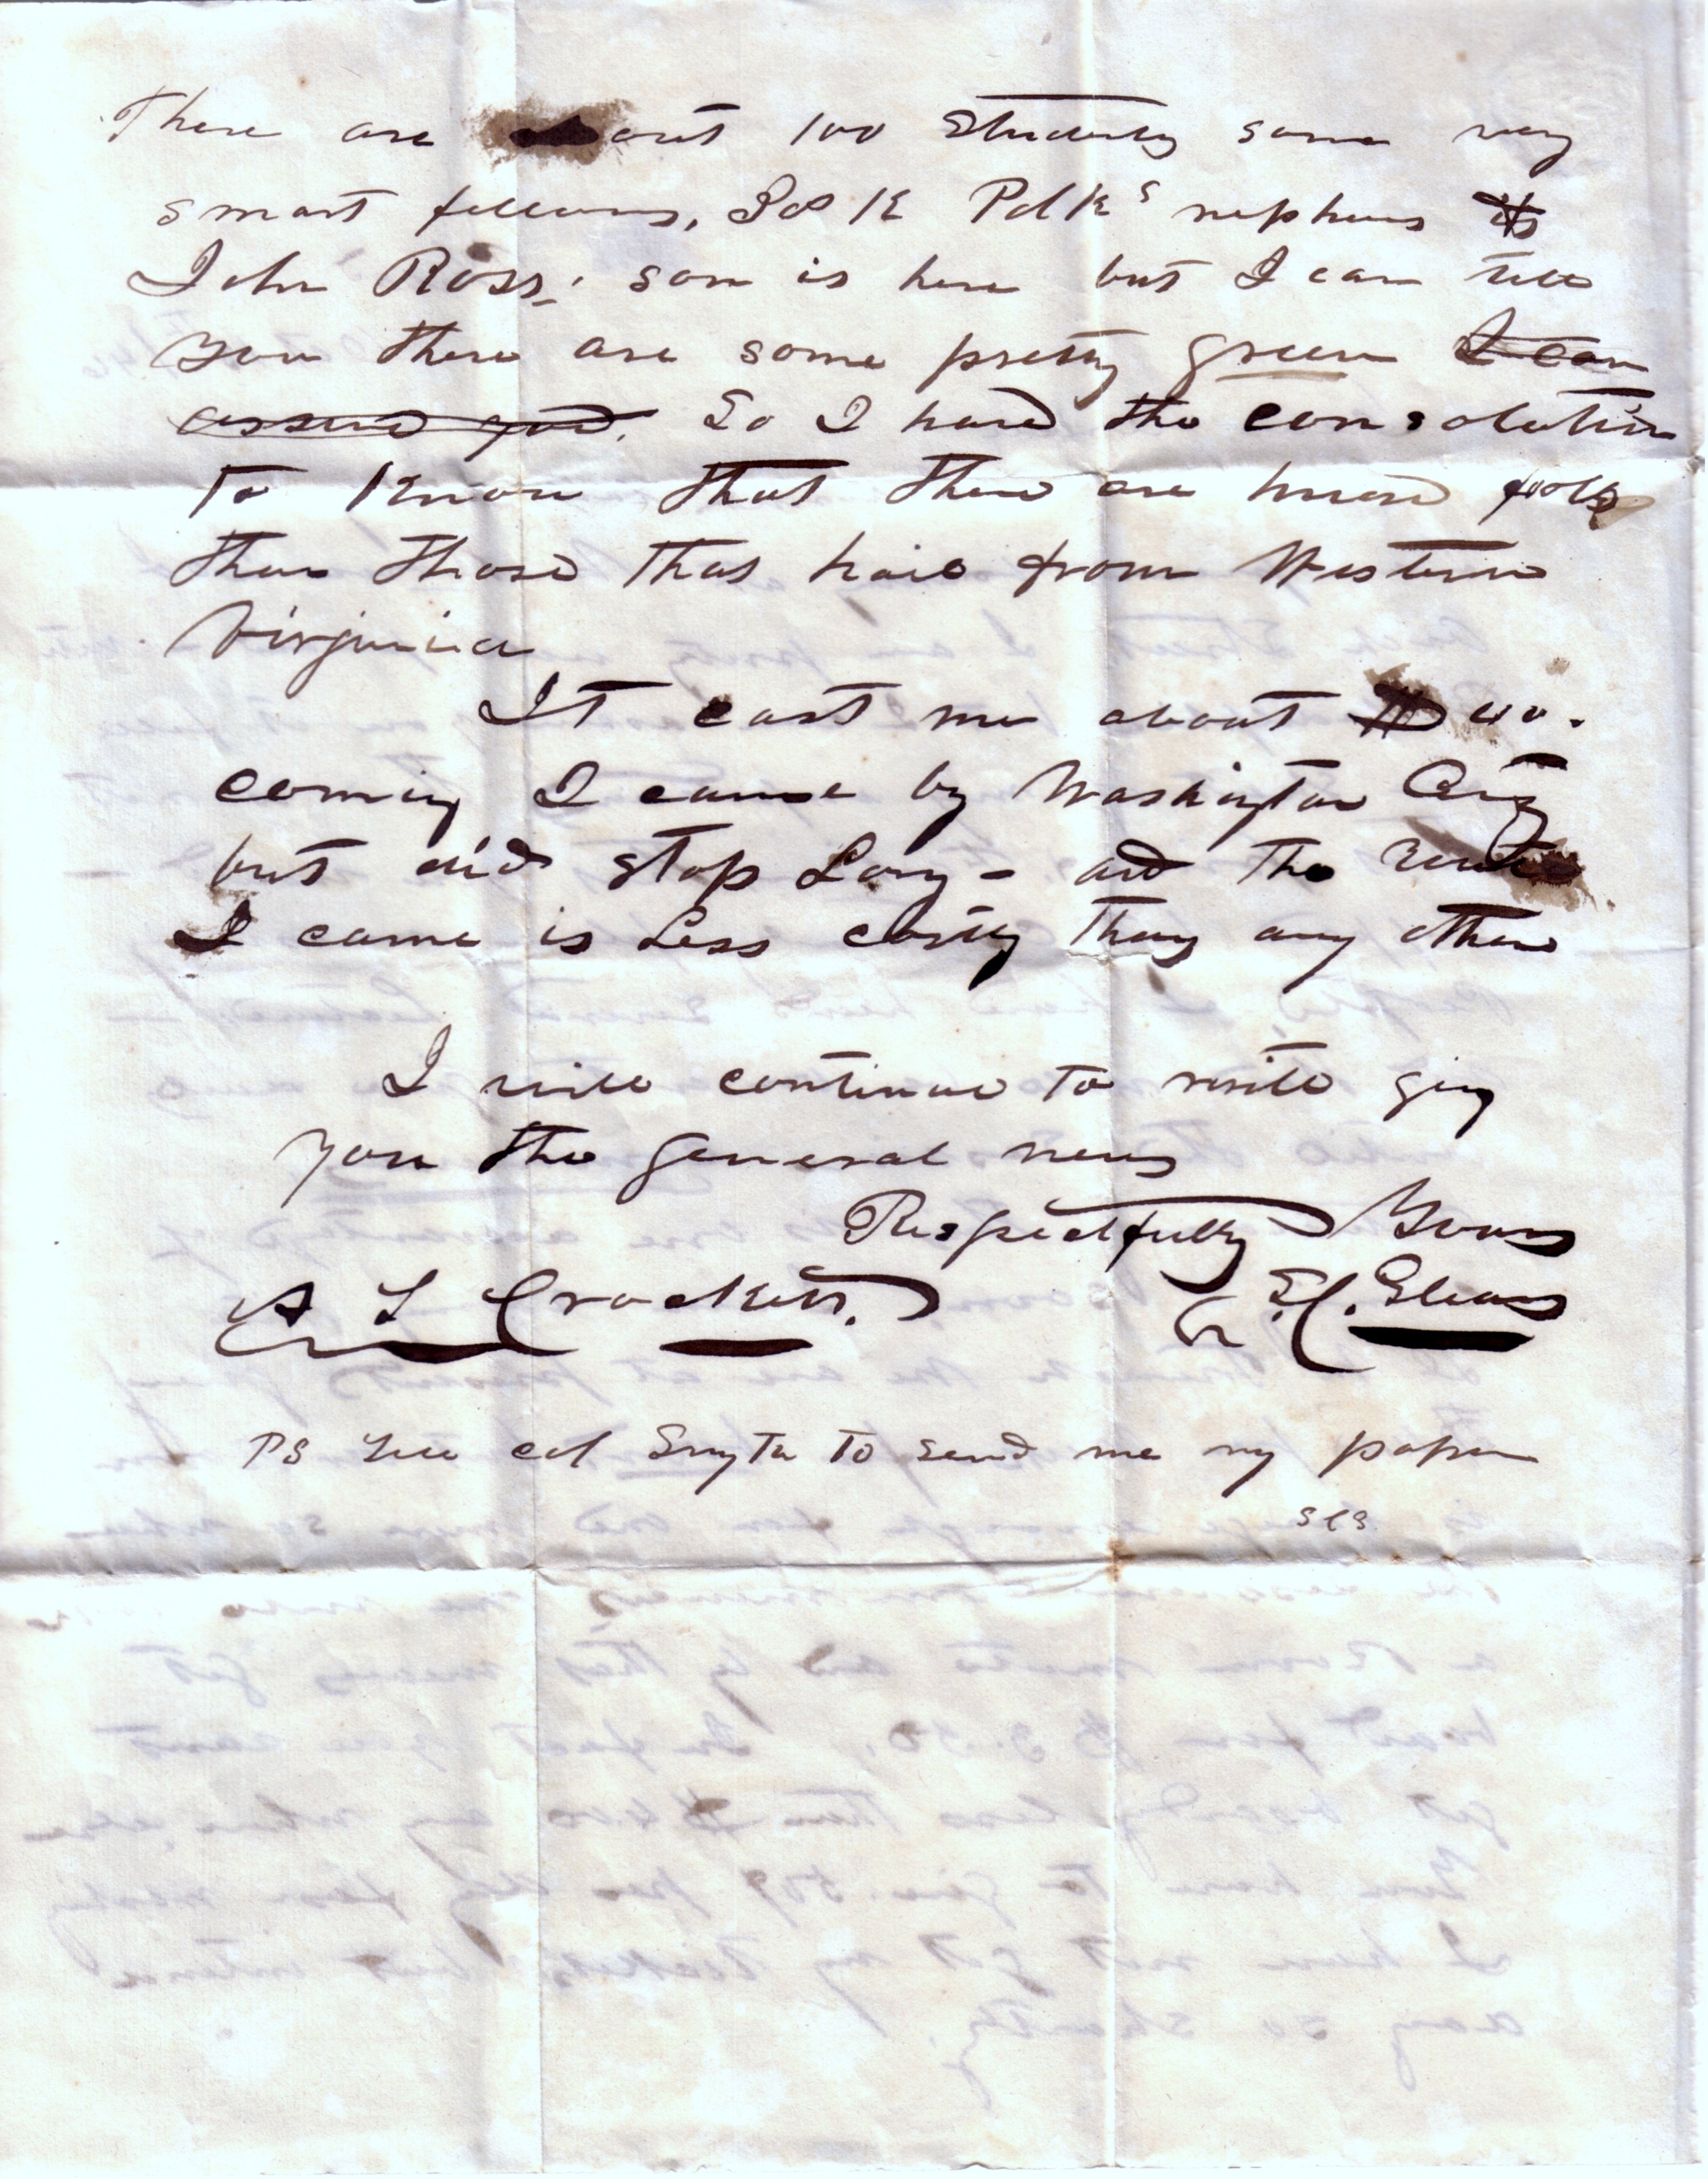 There are about 100 students some very
smart fellows, Jas K Polks nephews
John Ross' son is here but I can tell
you there are some pretty green I can
assure you. So I have the consolation
to Know that there are more fools
than those that hail from Western
Virginia
It cost me about $40.
coming I came by Washington City
but did stop Long - and the route
I came is Less costly than any other
I will continue to write giv
you the general news
Respectfully Yours
A L Crockett.
PS Tell col Smyth to send me my paper